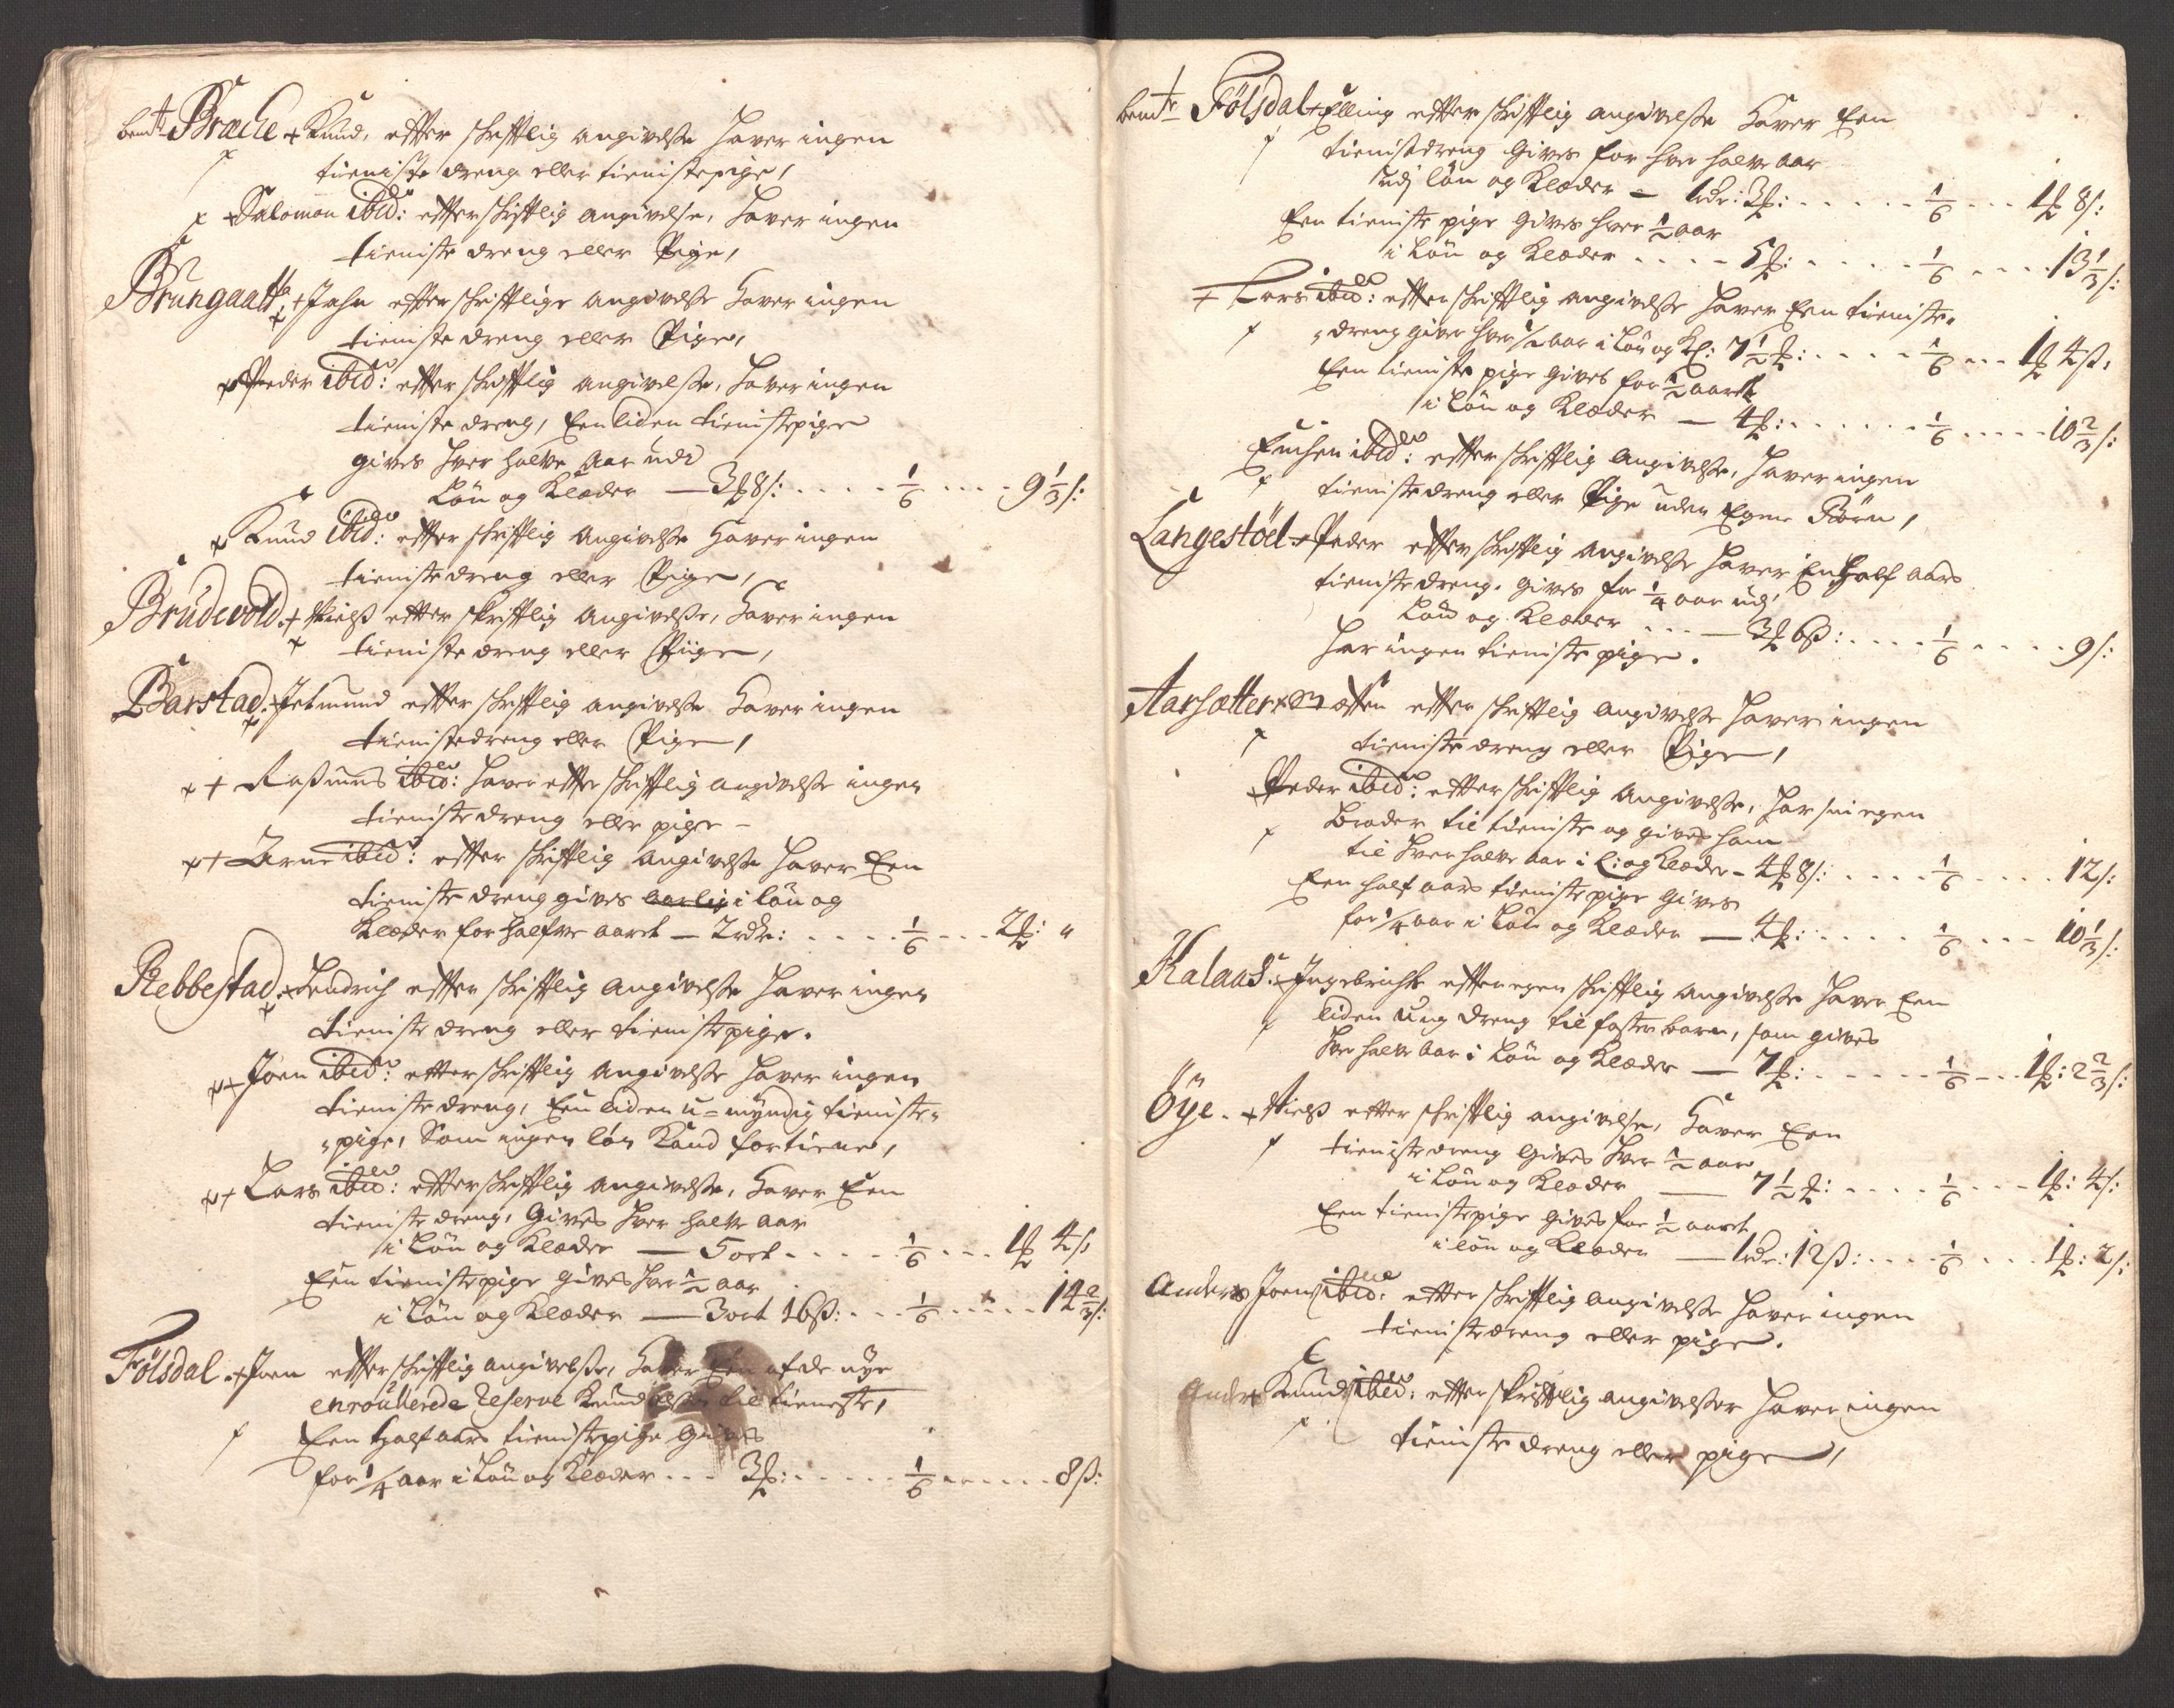 bemte Bræche + Knud, effter skrifftlig angivelsse haver ingen
tieniste dreng eller tienistepige,
Salomon ibid: effter skrifftlig angivelse, haver ingen
tieniste dreng eller Pige,
Brungaatt + Jahn effter skrifftlige angivelsse haver ingen
tieniste dreng eller Pige,
Peder ibid: effter skrifftlig angivelsse, haver ingen
tieniste dreng, Een liden tienistepige
gives hver halve Aar udi
Løn og Klæder — 3 8 s: . . . . 1/6 . . . . 9 1/3 s:
Knud ibid: effter skrifftlig angivelsse haver ingen
tienistedreng eller Pige,
Brudevold + Nielss effter skrifftlig angivelsse, haver ingen
tieniste dreng eller Piige,
Barstad. Jetmund effter skrifftlig angivelsse haver ingen
tienistedreng eller Pige,
+ Rassmus ibid: haver effter skrifftlig angivelsse ingen
tienistedreng eller pige -
+ Arne ibid: effter skrifftlig angivelsse haver Een
tieniste dreng gives aarlig i løn og
Klæder for halfve aaret — 2 rdr: . . . . 1/6 . . . 2 : "
Rebbestad. Hendrich effter skrifftlig angivelsse haver ingen
tieniste dreng eller tienistepige.
+ Joen ibid: effter skrifftlig angivelsse haver ingen
tieniste dreng, Een liden u-myndig tieniste-
pige, Som ingen løn Kand fortiene,
+ Lars ibid: effter skrifftlig angivelsse, haver Een
tieniste dreng, Gives hver halve aar
i Løn og Klæder — 5 ort . . . . 1/6 . . . 1 4 s
Een tienistepige gives hver 1/2 aar
i Løn og Klæder — 3 ort 16 ss: . . . 1/6 . . . . 14 2/3 s:
Følsdal. + Joen effter skrifftlig angivelsse, haver Een af de nye
enroullerede Reserve til tieneste,
Een halfaars tienistepige Gives
for 1/4 aar i Løn og Klæder . . . 3 : . . . . . 1/6 . . . . . 8 ss:
bemte Følsdal + Elling effter skrifftlig angivelsse haver Een
tienistedreng Gives for hver halve aar
udj løn og Klæder - 1 rdr: 3 : . . . . . 1/6 . . . 1 8 s:
Een tieniste pige gives hver 1/2 aar
i Løn og Klæder . . . . 5 : . . . . . 1/6 . . . . 13 1/3 s:
+ Lars ibid: effter skrifftlig angivelsse haver Een tieniste-
dreng giver hver 1/2 aar i Løn og Kl: 7 1/2 : . . . . . 1/6 . . . 1 4 ss.
Een tieniste pige gives for 1/2 aaret
i Løn og Klæder — 4 : . . . . . . 1/6 . . . . . 10 2/3 s:
ibid: effter skrifftlig angivelsse, haver ingen
tienistedreng eller Pige uden Egne Børn,
Langestöel + Peder effter skrifftlig angivelsse haver En half aars
tieniste dreng. gives for 1/4 aar udj
Løn og Klæder . . . — 3 6 ss: . . . . 1/6 . . . . . 9 s:
Har ingen tieniste pige.
Aarsætter effter skrifftlig angivelsse haver ingen
tieniste dreng eller Pige,
Peder ibid: effter skrifftlig Angivelsse, har sin egen
Broder til tieniste og gives ham
til hver halve aar i L: og Klæder - 4 8 s: . . . . 1/6 . . . . . 12 s:
Een half aars tieniste pige gives
for 1/4 aar i Løn og Klæder — 4 : . . . . . 1/6 . . . . 10 1/3 s:
Kalaas. Ingebricht effter egen skrifftlig angivelsse haver Een
liden ung dreng til foster barn, som gives
hver halve aar i Løn og Klæder — 7 : . . . . . . 1/6 . . . 1 : 2 2/3 s:
Öye. + Nielss effter skrifftlig angivelse, haver Een
tieniste dreng Gives hver 1/2 aar
i Løn og Klæder — 7 1/2 : . . . . . 1/6 . . . . 1 : 4 s:
Een tienistepige gives for 1/2 aaret
i løn og Klæder — 1 rdr: 12 ss: . . . . 1/6 . . . . 1 : 2 s:
Anders Joens ibid: effter skrifftlig angivelsse haver ingen
tieniste dreng eller pige.
Anders Knuds ibid: effter skrifftlig angivelsse haver ingen
tieniste dreng eller pige,